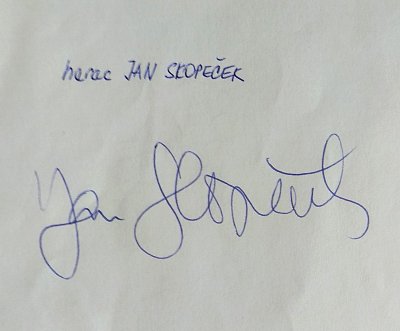 herec JAN SKOPEČEK
Jan Skopeček